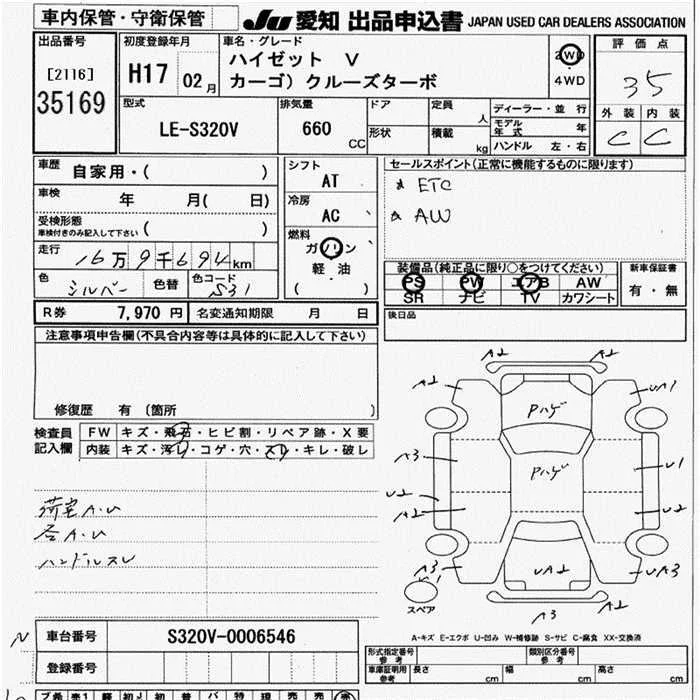 車内保管・守衛保管
JU 愛知 出品申込書 JAPAN USED CAR DEALERS ASSOCIATION
出品番号
[2116]
35169
初度登録年月
H17 02月
車名・グレード
ハイゼット V
カーゴ）クルーズターボ
2WD
4WD
評価点
35
外装 内装
C C
型式
LE-S320V
排気量
660 CC
ドア
形状
定員 人
積載 kg
ディーラー・並行
モデル年式 年
ハンドル 左・右
車歴 自家用・( )
車検 年 月( 日)
受検形態
車検付きのみ記入して下さい ( )
走行 16万9千694km
色 シルバー 色替 色コード S31
シフト
AT
冷房
AC
燃料
ガソリン
軽・油
( )
セールスポイント(正常に機能するものに限ります)
* ETC
* AW
装備品(純正品に限り○をつけてください)
PS PW エアB AW
SR ナビ TV カワシート
新車保証書
有・無
R券 7,970円 名変通知期限 月 日
後日品
注意事項申告欄(不具合内容等は具体的に記入して下さい)
修復歴 有 〔箇所 〕
検査員記入欄
FW キズ・飛石・ヒビ割・リペア跡・X要
内装 キズ・汚レ・コゲ・穴・スレ・キレ・破レ
荷室A・U
各A・U
ハンドルスレ
A2 A2
A2 UA1
Pハゲ
A3 Pハゲ U1
U2 U2
A2
A3 UA2 UA3
U1
スペア
A3 A2
A-キズ E-エクボ U-凹み W-補修跡 S-サビ C-腐食 XX-交換済
N 車台番号 S320V-0006546
登録番号
形式指定番号
参考
類別区分番号
参考
車庫証明用
参考
長さ cm 幅 cm 高さ cm